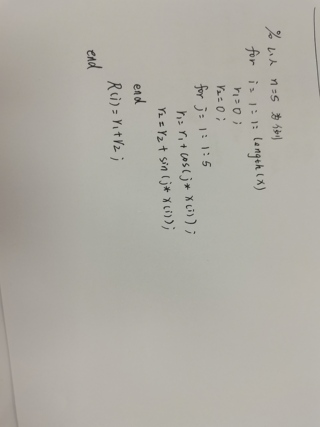 % 以 n=5 为例
for i = 1:1:length(x)
r1=0;
r2=0;
for j = 1:1:5
r1=r1+cos(j*x(i));
r2=r2+sin(j*x(i));
end
R(i)=r1+r2;
end